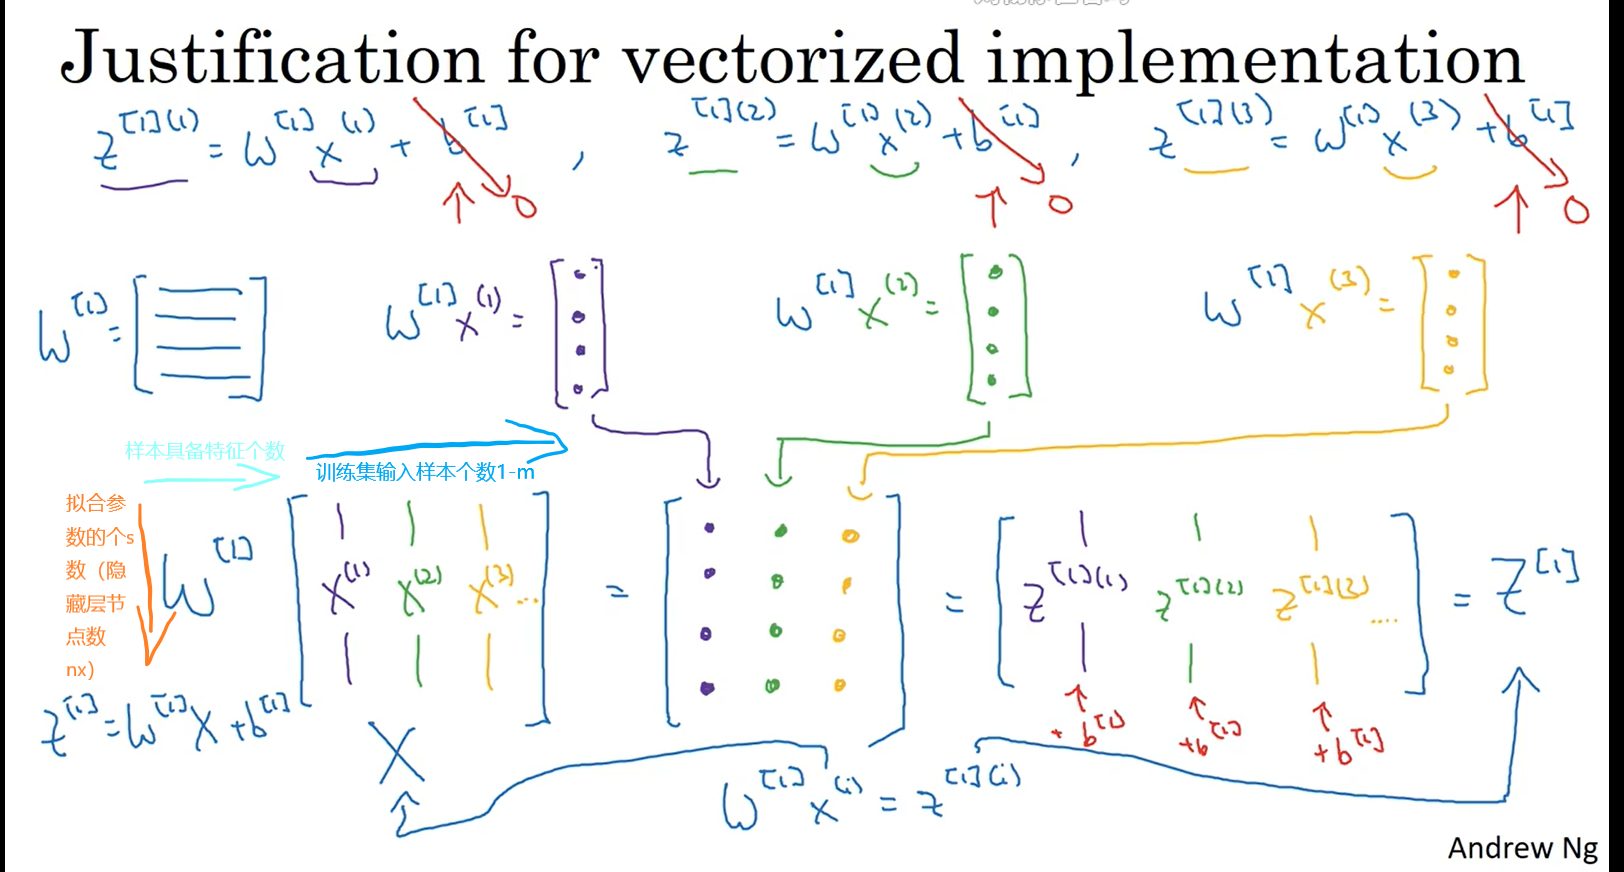 Justification for vectorized implementation
z^[1](1) = W^[1] x^(1) + b^[1] , z^[1](2) = W^[1] x^(2) + b^[1] , z^[1](3) = W^[1] x^(3) + b^[1]
↑ 0 ↑ 0 ↑ 0
W^[1] = [ ] W^[1] x^(1) = [ ] W^[1] x^(2) = [ ] W^[1] x^(3) = [ ]
样本具备特征个数
训练集输入样本个数1-m
拟合参
数的个s
数（隐
藏层节
点数
nx）
W^[1] [ x^(1) x^(2) x^(3) ... ] = [ ] = [ z^[1](1) z^[1](2) z^[1](3) .... ] = Z^[1]
+ b^[1] +b^[1] +b^[1]
z^[1] = W^[1] X + b^[1]
X
W^[1] x^(i) = z^[1](i)
Andrew Ng